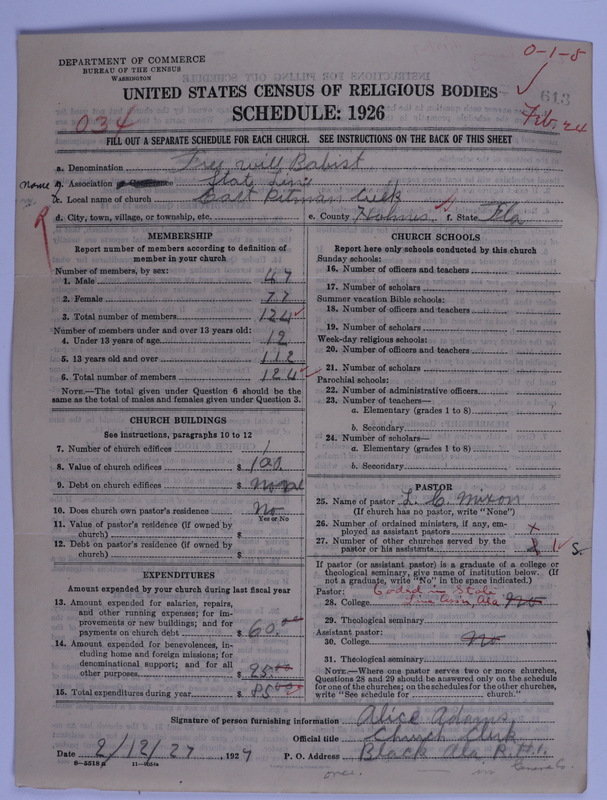 DEPARTMENT OF COMMERCE
BUREAU OF THE CENSUS
WASHINGTON
0-1-8
UNITED STATES CENSUS OF RELIGIOUS BODIES
613
SCHEDULE: 1926
034
Feb. 24
FILL OUT A SEPARATE SCHEDULE FOR EACH CHURCH. SEE INSTRUCTIONS ON THE BACK OF THIS SHEET
a. Denomination Free will Babist
Name b. Association State Line
c. Local name of church East Pitman Creek
d. City, town, village, or township, etc. e. County Holmes f. State Fla
R
MEMBERSHIP
Report number of members according to definition of
member in your church
Number of members, by sex:
1. Male 47
2. Female 77
3. Total number of members 124
Number of members under and over 13 years old:
4. Under 13 years of age 12
5. 13 years old and over 112
6. Total number of members 124
NOTE.—The total given under Question 6 should be the
same as the total of males and females given under Question 3.
CHURCH BUILDINGS
See instructions, paragraphs 10 to 12
7. Number of church edifices 1
8. Value of church edifices $ 100
9. Debt on church edifices $
10. Does church own pastor's residence No
Yes or No
11. Value of pastor's residence (if owned by
church) $
12. Debt on pastor's residence (if owned by
church) $
EXPENDITURES
Amount expended by your church during last fiscal year
13. Amount expended for salaries, repairs,
and other running expenses; for im-
provements or new buildings; and for
payments on church debt $ 60.00
14. Amount expended for benevolences, in-
cluding home and foreign missions; for
denominational support; and for all
other purposes $ 25.00
15. Total expenditures during year $ 85.00
CHURCH SCHOOLS
Report here only schools conducted by this church
Sunday schools:
16. Number of officers and teachers
17. Number of scholars
Summer vacation Bible schools:
18. Number of officers and teachers
19. Number of scholars
Week-day religious schools:
20. Number of officers and teachers
21. Number of scholars
Parochial schools:
22. Number of administrative officers
23. Number of teachers—
a. Elementary (grades 1 to 8)
b. Secondary
24. Number of scholars—
a. Elementary (grades 1 to 8)
b. Secondary
PASTOR
25. Name of pastor L. C. Mixon
(If church has no pastor, write "None")
26. Number of ordained ministers, if any, em-
ployed as assistant pastors x
27. Number of other churches served by the
pastor or his assistants S.
If pastor (or assistant pastor) is a graduate of a college or
theological seminary, give name of institution below. (If
not a graduate, write "No" in the space indicated.)
Pastor: Coded in State
28. College Line Assn, Ala No
29. Theological seminary
Assistant pastor:
30. College No
31. Theological seminary
NOTE.—Where one pastor serves two or more churches,
Questions 28 and 29 should be answered only on the schedule
for one of the churches; on the schedules for the other churches,
write "See schedule for church."
Signature of person furnishing information Alice Adams
Official title Church Clerk
Date 2/12/27, 1927 P. O. Address Black Ala R.#1.
8-5518a 11-9051a
ones. Geneva Co.